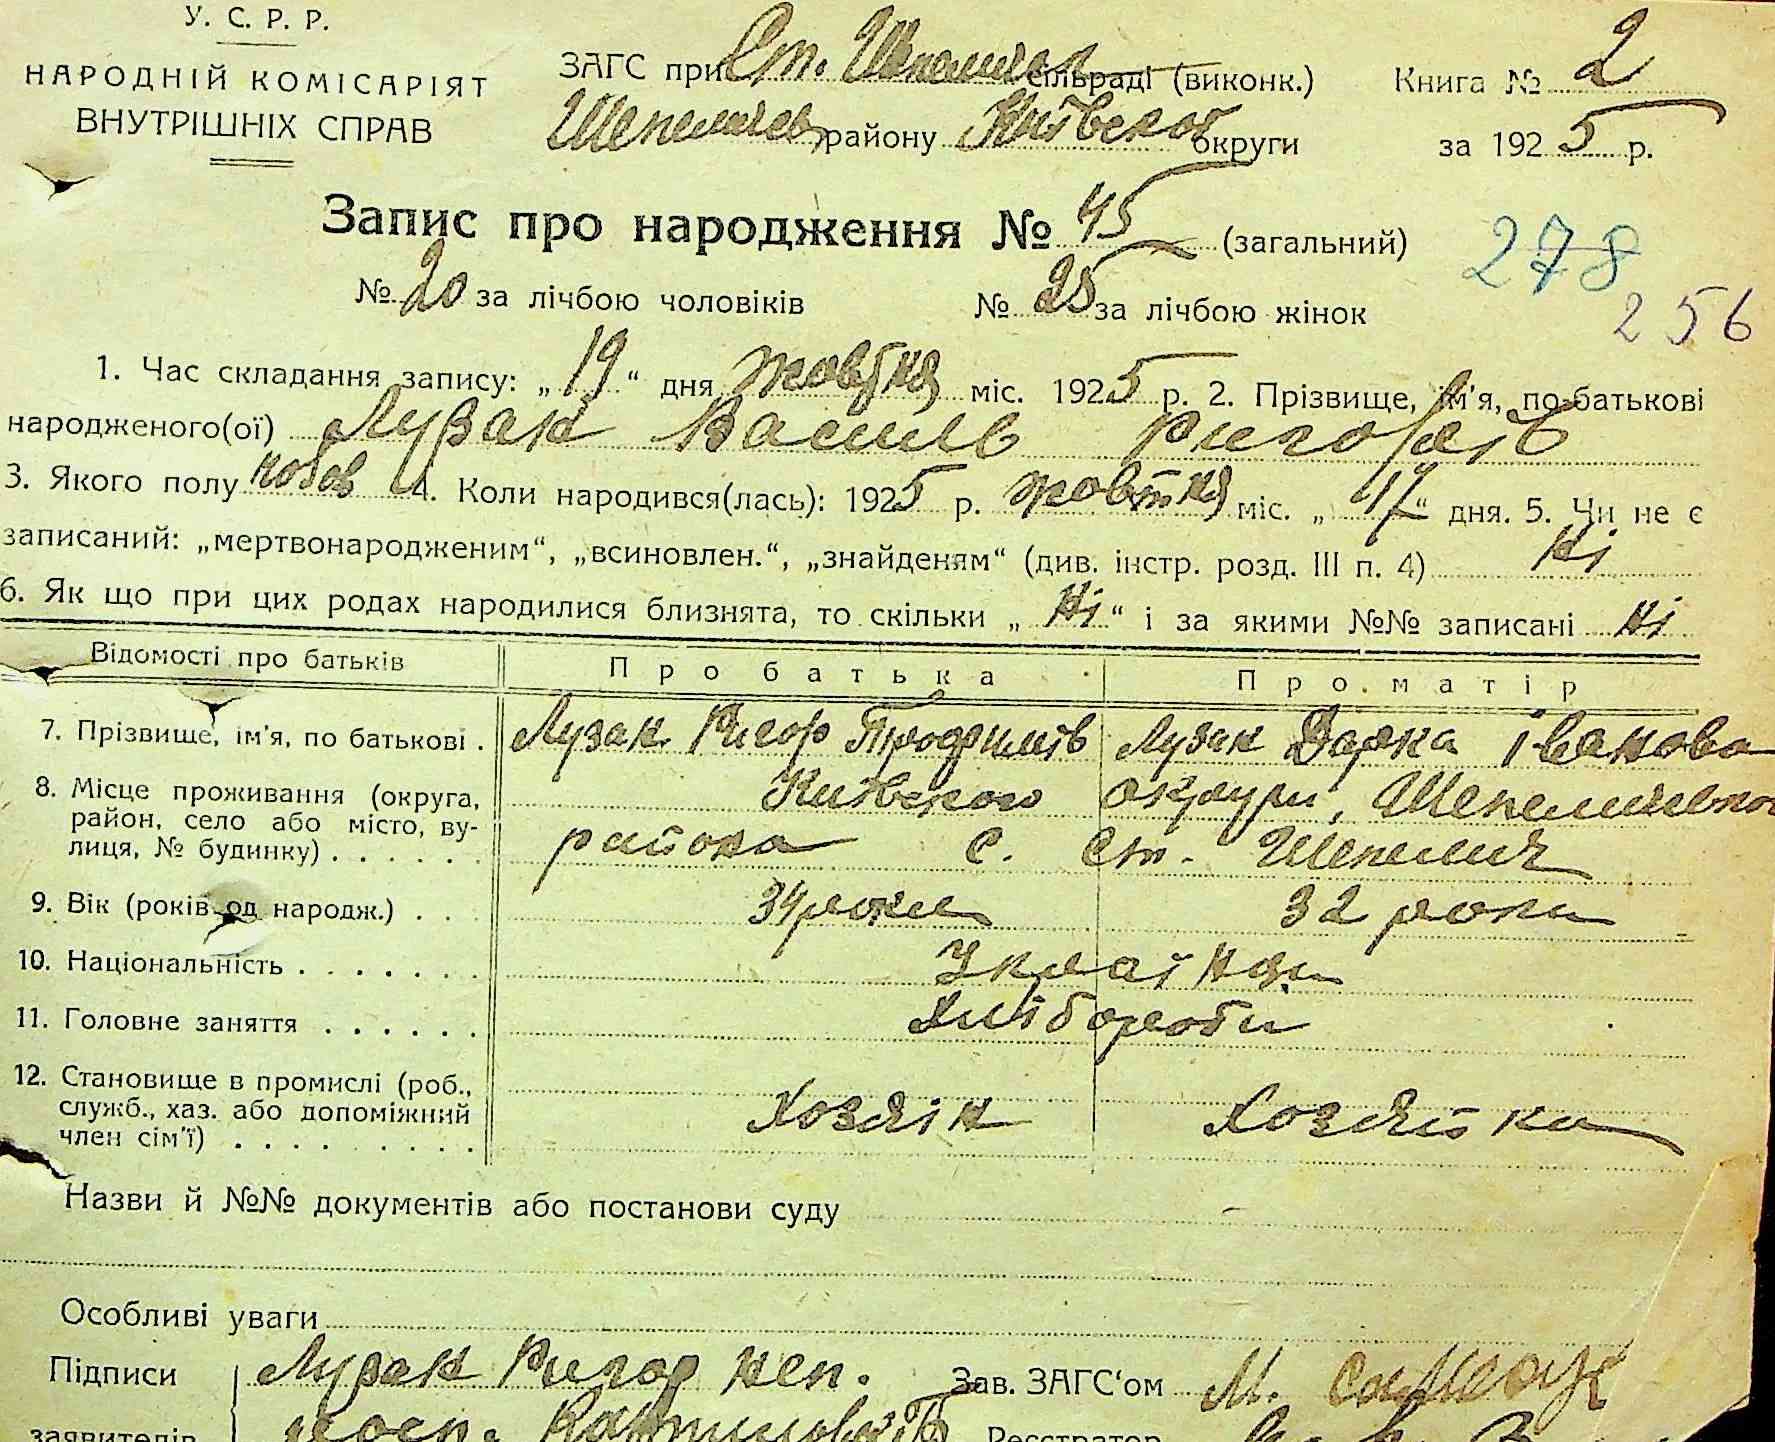 У. С. Р. Р.
НАРОДНІЙ КОМІСАРІЯТ
ВНУТРІШНІХ СПРАВ
ЗАГС при Ст. Шепеличах сільраді (виконк.)
районy Київської округи
Книга № 2
за 1925 р.
Запис про народження № 45 (загальний)
№ 20 за лічбою чоловіків № 25 за лічбою жінок
278
256
1. Час складання запису: „ 19 “ дня жовтня міс. 1925 р. 2. Прізвище, ім'я, по-батькові
народженого(ої) Лузак Василь Ригорів
3. Якого полу 4. Коли народився(лась): 1925 р. жовтня міс. „ 17 “ дня. 5. Чи не є
записаний: „мертвонародженим“, „всиновлен.“, „знайденям“ (див. інстр. розд. III п. 4) Ні
6. Як що при цих родах народилися близнята, то скільки „ Ні “ і за якими №№ записані Ні
Відомості про батьків Про батька Про матір
7. Прізвище, ім'я, по батькові . Лузак Ригор Трофимів Лузак Дарка Іванова
8. Місце проживання (округа, район, село або місто, вулиця, № будинку) . . . . . . Київского округи, Шепеличевского
района с. Ст. Шепеличі
9. Вік (років од народж.) . . . 34 роки 32 роки
10. Національність . . . . . . . Українці
11. Головне заняття . . . . . . Хлібороби
12. Становище в промислі (роб., служб., хаз. або допоміжний член сім'ї) . . . . . . . . . Хозяін Хозяйка
Назви й №№ документів або постанови суду
Особливі уваги
Підписи Лузак Ригор неп. Зав. ЗАГС‘ом М.
заявителів Реєстратор